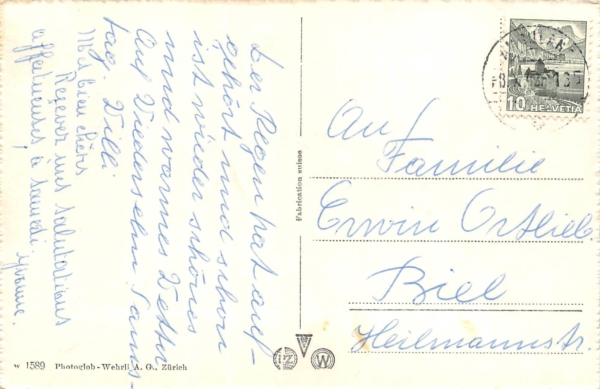 Der Regen hat auf-
gehört und schon
ist wieder schönes
und warmes Wetter
Auf Wiedersehn Sams-
tag. Willi
Mes bien chers
Recevez mes salutations
affectueuses à samedi.
Yvonne.
Fabrication suisse
10 HELVETIA
An
Familie
Erwin Ortlieb
Biel
Heilmannstr.
W 1589 Photoglob-Wehrli A. G., Zürich
PZ
W